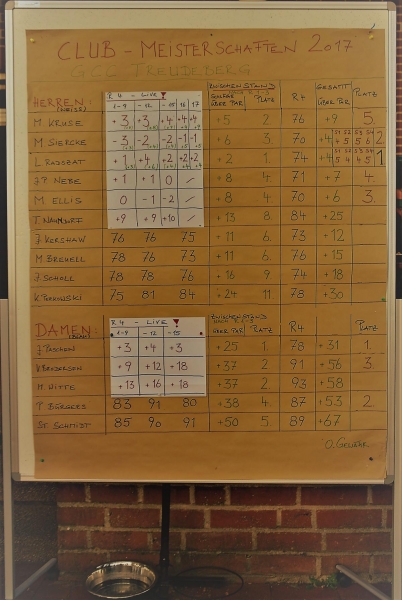 CLUB - MEISTERSCHAFTEN 2017
GCC TREUDEBERG
HERREN: R4 - LIVE ZWISCHENSTAND R4 GESAMT PLATZ
(WEISS) 1-9 -12 -15 16 17 ÜBER PAR PLATZ ÜBER PAR
M KRUSE +3 +3 +4 +4 +4 +5 2. 76 +9 5.
M SIERCKE -3 -2 -2 -1 -1 +6 3. 70 +4 2
L +1 +4 +2 +2 +2 +2 1. 74 +4 1
J.P. NEBE +1 +1 0 / +8 4. 71 +7 4.
M ELLIS 0 -1 -2 / +8 4 70 +6 3.
T. +9 +9 +10 / +13 8. 84 +25
J. KERSHAW 76 76 75 +11 6. 73 +12
M. BREHELL 78 76 73 +11 6. 76 +15
J. SCHOLL 78 78 76 +16 9 74 +18
K. 75 81 84 +24 11. 78 +30
DAMEN: R4 - LIVE ZWISCHENSTAND R4 PLATZ
1-9 -12 -15 ÜBER PAR PLATZ ÜBER PAR
J. PASCHEN +3 +4 +3 +25 1. 78 +31 1.
V. +9 +12 +18 +37 2 91 +56 3.
M. WITTE +13 +16 +18 +37 2 93 +58
P. BÜRGERS 83 91 80 +38 4. 87 +53 2.
ST. SCHMIDT 85 90 91 +50 5. 89 +67
O. GEWÄHR